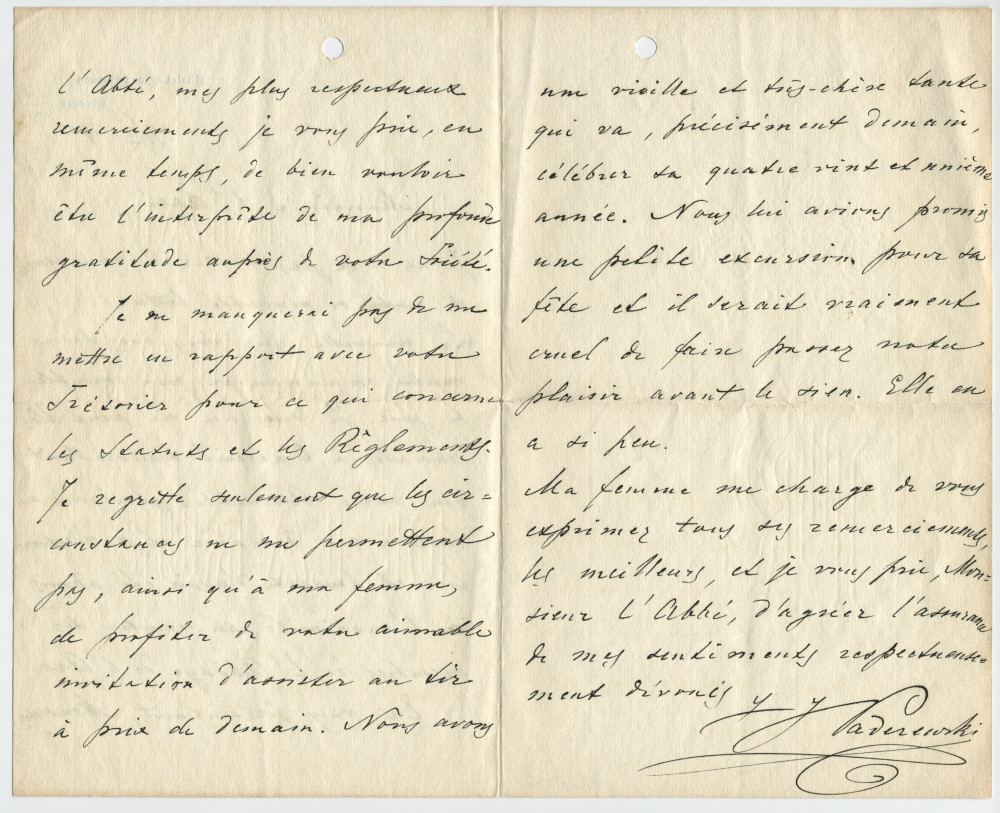 l'Abbé, mes plus respectueux
remerciements je vous prie, en
même temps, de bien vouloir
être l'interprète de ma profonde
gratitude auprès de votre Société.
Je ne manquerai pas de me
mettre en rapport avec votre
Trésorier pour ce qui concerne
les Statuts et les Règlements.
Je regrette seulement que les cir=
constances ne me permettent
pas, ainsi qu'à ma femme,
de profiter de votre aimable
invitation d'assister au tir
à prix de demain. Nous avons
une vieille et très-chère tante
qui va, précisément demain,
célébrer sa quatre vint et unième
année. Nous lui avions promis
une petite excursion pour sa
fête et il serait vraiment
cruel de faire passer notre
plaisir avant le sien. Elle en
a si peu.
Ma femme me charge de vous
exprimer tous ses remerciements,
les meilleurs, et je vous prie, Mon-
sieur l'Abbé, d'agréer l'assurance
de mes sentiments respectueuse=
ment dévoués
I J Paderewski